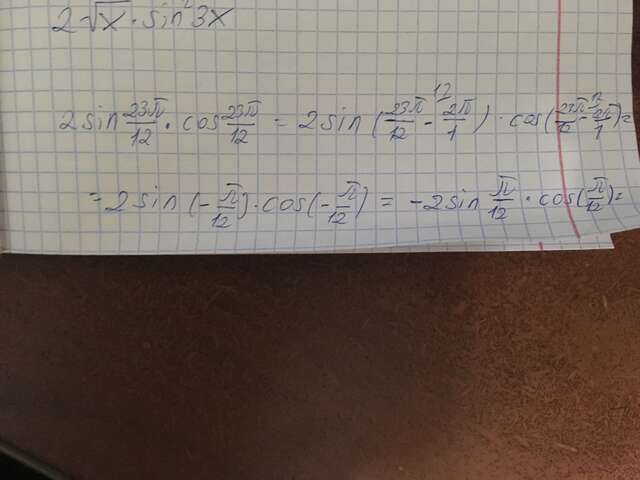 2·√x · sin² 3x
2 sin 23π/12 · cos 23π/12 = 2 sin (23π/12 - 2π/1 ¹²) · cos (23π/12 - 2π/1 ¹²) =
= 2 sin (-π/12) · cos (-π/12) = -2 sin π/12 · cos (π/12) =